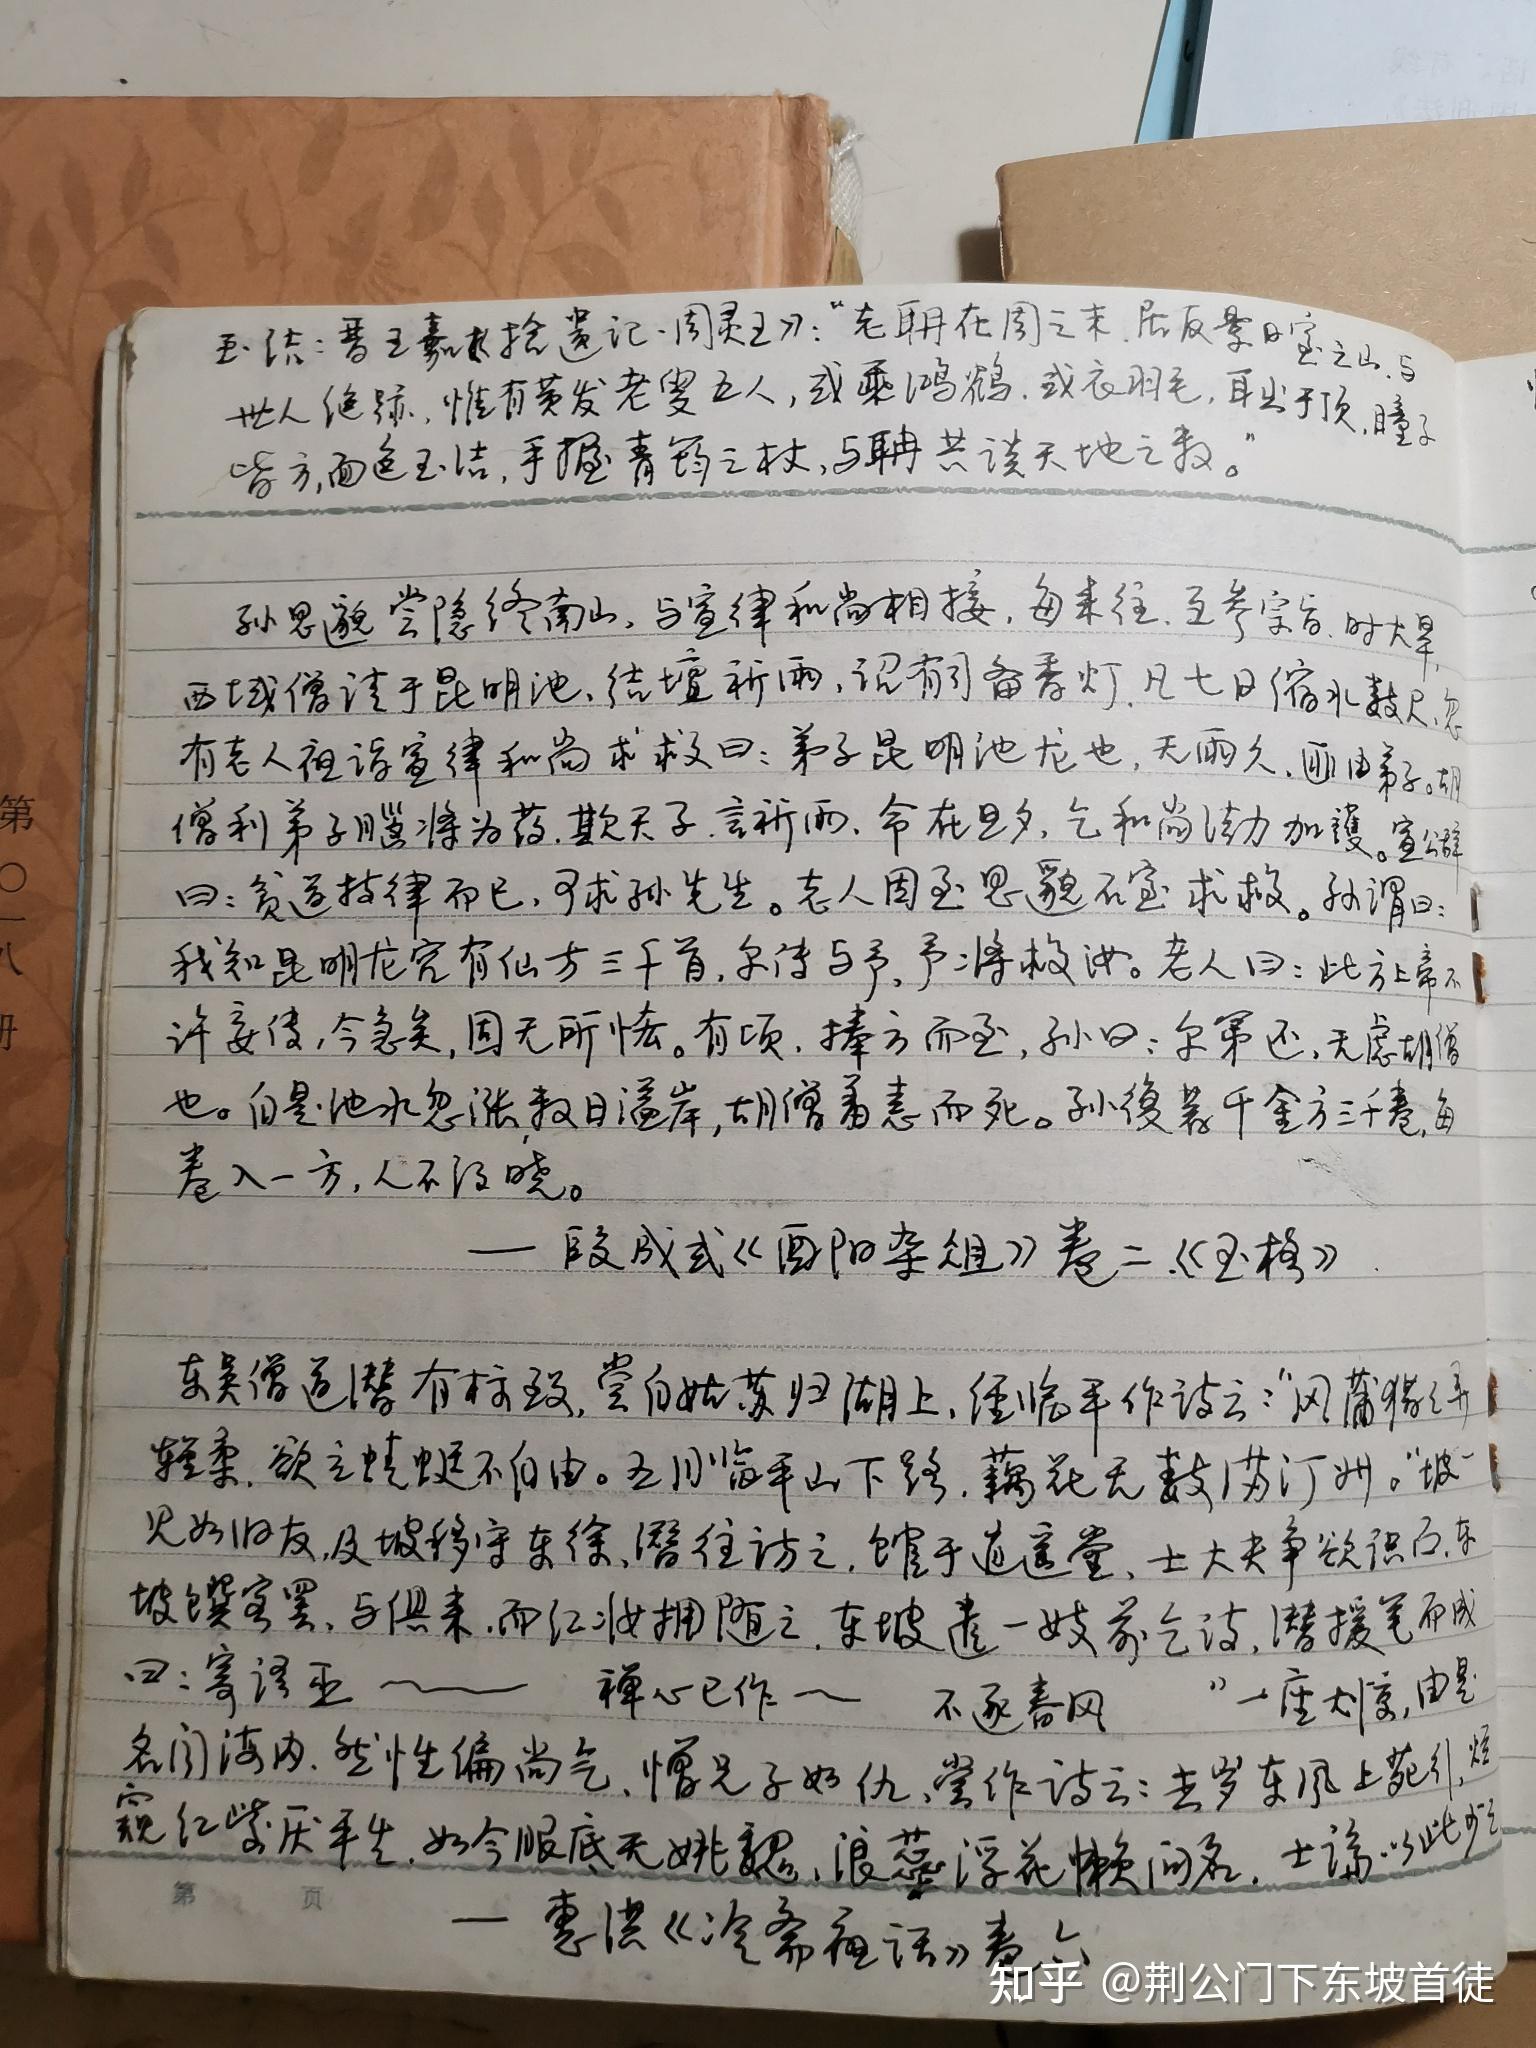 玉洁：晋王嘉《拾遗记·周灵王》：“老聃在周之末，居反景日室之山，与
世人绝迹，惟有黄发老叟五人，或乘鸿鹤，或衣羽毛，耳出于顶，瞳子
皆方，面色玉洁，手握青筠之杖，与聃共谈天地之数。”
孙思邈尝隐终南山，与宣律和尚相接，每来往，互参宗旨，时大旱，
西域僧请于昆明池，结坛祈雨，诏有司备香灯，凡七日缩水数尺，忽
有老人夜诣宣律和尚求救曰：弟子昆明池龙也，无雨久，匪由弟子。胡
僧利弟子脑将为药，欺天子，言祈雨，命在旦夕，乞和尚法力加護。宣公辞
曰：贫道持律而已，可求孙先生。老人因至思邈石室求救。孙谓曰：
我知昆明龙宫有仙方三千首，尔传与予，予将救汝。老人曰：此方上帝不
许妄传，今急矣，固无所悋。有顷，捧方而至，孙曰：尔第还，无虑胡僧
也。自是池水忽涨，数日溢岸，胡僧羞恚而死。孙復著千金方三千卷，每
卷入一方，人不得晓。
— 段成式《酉阳杂俎》卷二《玉格》
东吴僧道潜有标致，尝自姑苏归湖上，经临平作诗云：“风蒲猎猎弄
轻柔，欲立蜻蜓不自由。五月临平山下路，藕花无数满汀洲。”坡一
见如旧友，及坡移守东徐，潜往访之，馆于逍遥堂，士大夫争欲识面，东
坡馔客罢，与俱来，而红妆拥随之，东坡遣一妓前乞诗，潜援笔而成
曰：寄语巫 禅心已作 不逐春风 ”一座大惊，由是
名闻海内，然性偏尚气，憎凡子如仇，尝作诗云：去岁东风上苑行，烂
窥红紫厌平生，如今眼底无姚魏，浪蕊浮花懒问名，士论以此少之
— 惠洪《冷斋夜话》卷六
第 页
第〇一八册
知乎 @荆公门下东坡首徒